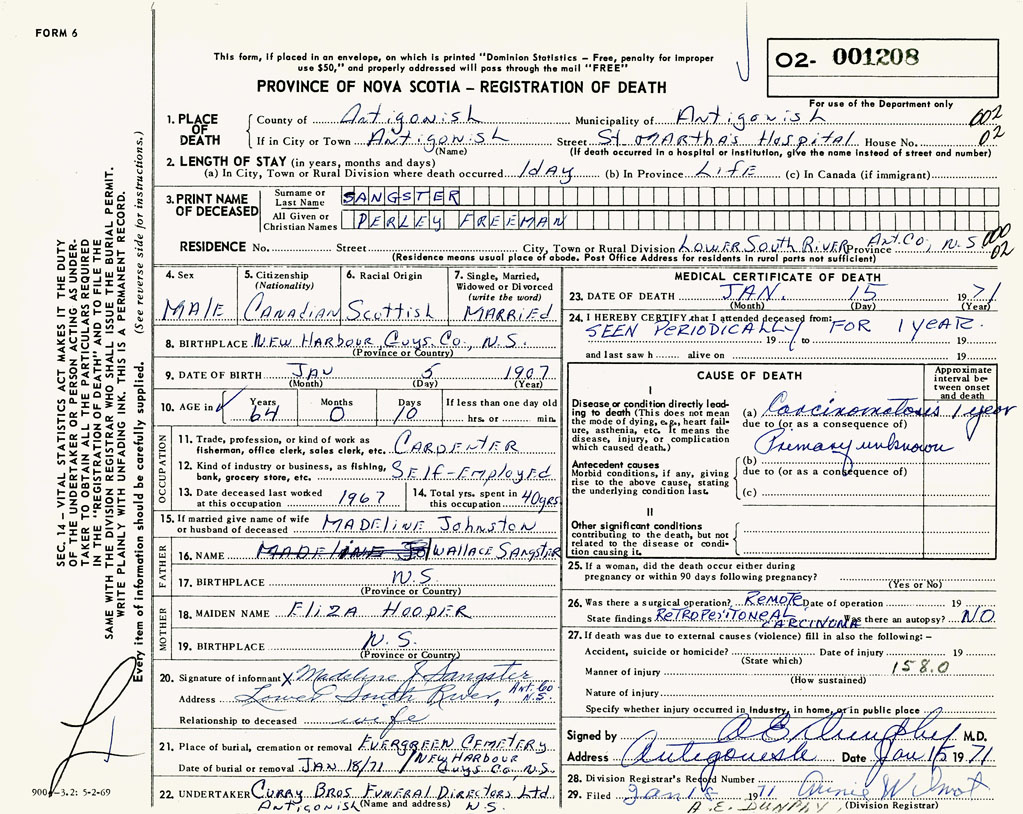 FORM 6
This form, if placed in an envelope, on which is printed "Dominion Statistics – Free, penalty for improper
use $50," and properly addressed will pass through the mail "FREE"
O2- 001208
PROVINCE OF NOVA SCOTIA – REGISTRATION OF DEATH
For use of the Department only
1. PLACE OF DEATH County of Antigonish Municipality of Antigonish 002
If in City or Town Antigonish Street St. Martha's Hospital House No. 02
(Name) (If death occurred in a hospital or institution, give the name instead of street and number)
2. LENGTH OF STAY (in years, months and days)
(a) In City, Town or Rural Division where death occurred 1 day (b) In Province Life (c) In Canada (if immigrant)
3. PRINT NAME OF DECEASED Surname or Last Name SANGSTER
All Given or Christian Names PERLEY FREEMAN
RESIDENCE No. Street City, Town or Rural Division Lower South River Province Ant. Co., N.S 000 02
(Residence means usual place of abode. Post Office Address for residents in rural parts not sufficient)
4. Sex MALE
5. Citizenship (Nationality) Canadian
6. Racial Origin Scottish
7. Single, Married, Widowed or Divorced (write the word) MARRIED
8. BIRTHPLACE New Harbour, Guys. Co., N.S.
(Province or Country)
9. DATE OF BIRTH JAN 5 1907
(Month) (Day) (Year)
10. AGE in Years 64 Months 0 Days 10 If less than one day old hrs. or min.
OCCUPATION
11. Trade, profession, or kind of work as fisherman, office clerk, sales clerk, etc. CARPENTER
12. Kind of industry or business, as fishing, bank, grocery store, etc. Self-Employed
13. Date deceased last worked at this occupation 1967
14. Total yrs. spent in this occupation 40 yrs
15. If married give name of wife or husband of deceased MADELINE Johnston
FATHER
16. NAME WALLACE SANGSTER
17. BIRTHPLACE N.S.
(Province or Country)
MOTHER
18. MAIDEN NAME ELIZA HOOPER
19. BIRTHPLACE N.S.
(Province or Country)
20. Signature of informant X Madeline J Sangster
Address Lower South River, Ant. Co N.S.
Relationship to deceased wife
21. Place of burial, cremation or removal EVERGREEN CEMETERY
Date of burial or removal JAN 18/71 / NEW HARBOUR Guys. Co. N.S.
22. UNDERTAKER Curry Bros Funeral Directors Ltd.
Antigonish (Name and address) N.S.
MEDICAL CERTIFICATE OF DEATH
23. DATE OF DEATH JAN. 15 1971
(Month) (Day) (Year)
24. I HEREBY CERTIFY that I attended deceased from:
SEEN PERIODICALLY FOR 1 YEAR.
19 to 19
and last saw h alive on 19
CAUSE OF DEATH
Approximate interval between onset and death
I
Disease or condition directly leading to death (This does not mean the mode of dying, e.g., heart failure, asthenia, etc. It means the disease, injury, or complication which caused death.)
(a) Carcinomatosis 1 year
due to (or as a consequence of)
Primary unknown
Antecedent causes
Morbid conditions, if any, giving rise to the above cause, stating the underlying condition last.
(b)
due to (or as a consequence of)
(c)
II
Other significant conditions contributing to the death, but not related to the disease or condition causing it.
25. If a woman, did the death occur either during pregnancy or within 90 days following pregnancy?
(Yes or No)
26. Was there a surgical operation? Remote Date of operation 19
State findings RETROPERITONEAL CARCINOMA Was there an autopsy? NO
27. If death was due to external causes (violence) fill in also the following: –
Accident, suicide or homicide? Date of injury 19
(State which)
Manner of injury 158.0
(How sustained)
Nature of injury
Specify whether injury occurred in industry, in home, or in public place
Signed by A E Dunphy M.D.
Address Antigonish Date Jan 15 1971
28. Division Registrar's Record Number
29. Filed Jan 18 1971
A. E. DUNPHY (Division Registrar)
SEC. 14 – VITAL STATISTICS ACT MAKES IT THE DUTY
OF THE UNDERTAKER OR PERSON ACTING AS UNDER-
TAKER TO OBTAIN ALL THE PARTICULARS REQUIRED
IN THE "REGISTRATION OF DEATH" AND TO FILE THE
SAME WITH THE DIVISION REGISTRAR WHO SHALL ISSUE THE BURIAL PERMIT.
WRITE PLAINLY WITH UNFADING INK. THIS IS A PERMANENT RECORD.
Every item of information should be carefully supplied. (See reverse side for instructions.)